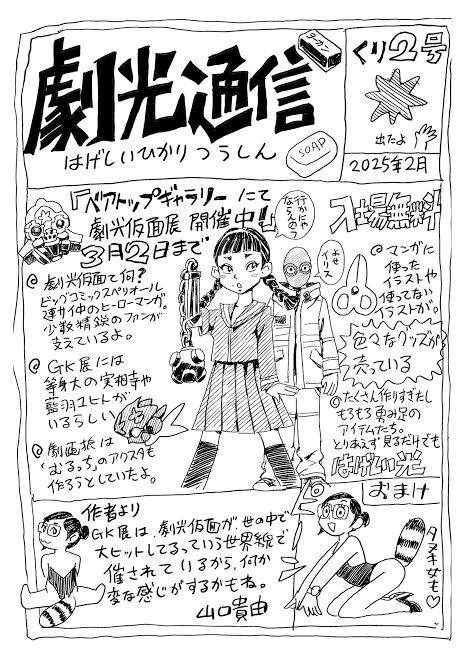 劇光通信
はげしいひかりつうしん
チーカン
SOAP
くり2号
出たよ
2025年2月
『ベアトップギャラリー』にて
劇光仮面展 開催中!!
3月2日まで
入場無料
行かにゃ
ならんの?
よせ
イリス
@ 劇光仮面て何?
ビッグコミックスペリオール
連サイ中のヒーローマンガ。
少数精鋭のファンが
支えているよ。
@ GK展には
等身大の実相寺や
藍羽ユヒトが
いるらしい
@ 劇画狼は
「むるっち」のアクスタも
作ろうとしていたよ。
@ マンガに
使った
イラストや
使ってない
イラストが。
色々なグッズが
売っている
@ たくさん作りすぎたし
もろもろ勇み足の
アイテムたち。
とりあえず見るだけでも
はげしい光
作者より
GK展は、劇光仮面が世の中で
大ヒットしてるっていう世界線で
催されているから、何か
変な感じがするかもね。
山口貴由
おまけ
タヌキ女も♡